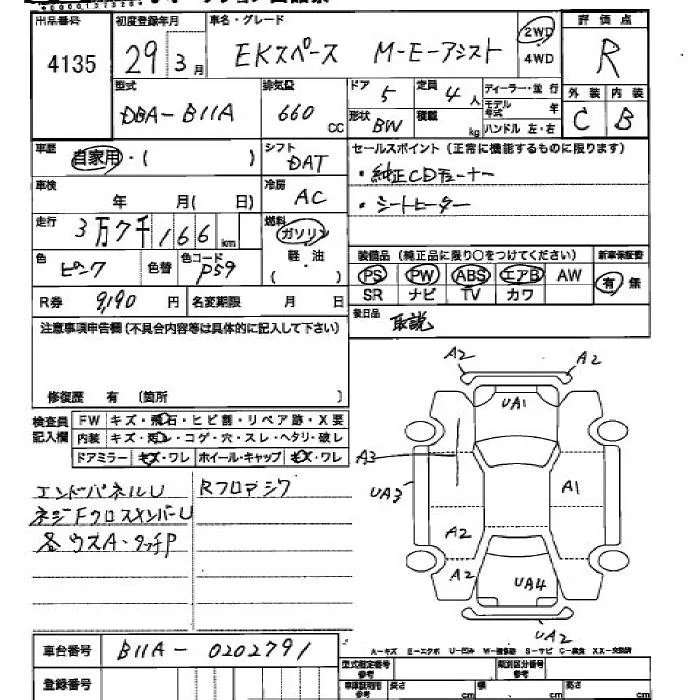 出品番号 初度登録年月 車名・グレード 評価点
4135 29年3月 EKスペース M-E-アシスト 2WD 4WD R
型式 排気量 ドア 定員 ディーラー・並行 外装 内装
DBA-B11A 660cc 5 4人 モデル年式 年 C B
形状 BW 積載 kg ハンドル 左・右
車歴 自家用・( ) シフト DAT セールスポイント(正常に機能するものに限ります)
・純正CDチューナー
車検 年 月(日) 冷房 AC ・シートヒーター
走行 3万7千166km 燃料 ガソリン
軽・油
( )
色 ピンク 色替 色コード P59 装備品(純正品に限り○をつけてください) 新車保証書
PS PW ABS エアB AW 有 無
SR ナビ TV カワ
R券 9,190円 名変期限 月 日 後日品 取説
注意事項申告欄(不具合内容等は具体的に記入して下さい)
修復歴 有 〔箇所 〕
検査員記入欄 FW キズ・飛石・ヒビ割・リペア跡・X要
内装 キズ・汚レ・コゲ・穴・スレ・ヘタリ・破レ
ドアミラー キズ・ワレ ホイール・キャップ キズ・ワレ
エンドパネルU Rフロアシワ
ネジFクロスメンバーU
各ウスA・タッチP
A2 A2
UA1
A3 UA3 A1
A2
A2 UA4
UA2
A-キズ E-エクボ U-凹み W-補修跡 S-サビ C-腐食 XX-交換済
車台番号 B11A-0202791 型式指定番号 参考 類別区分番号 参考
登録番号 長さ cm 幅 cm 高さ cm